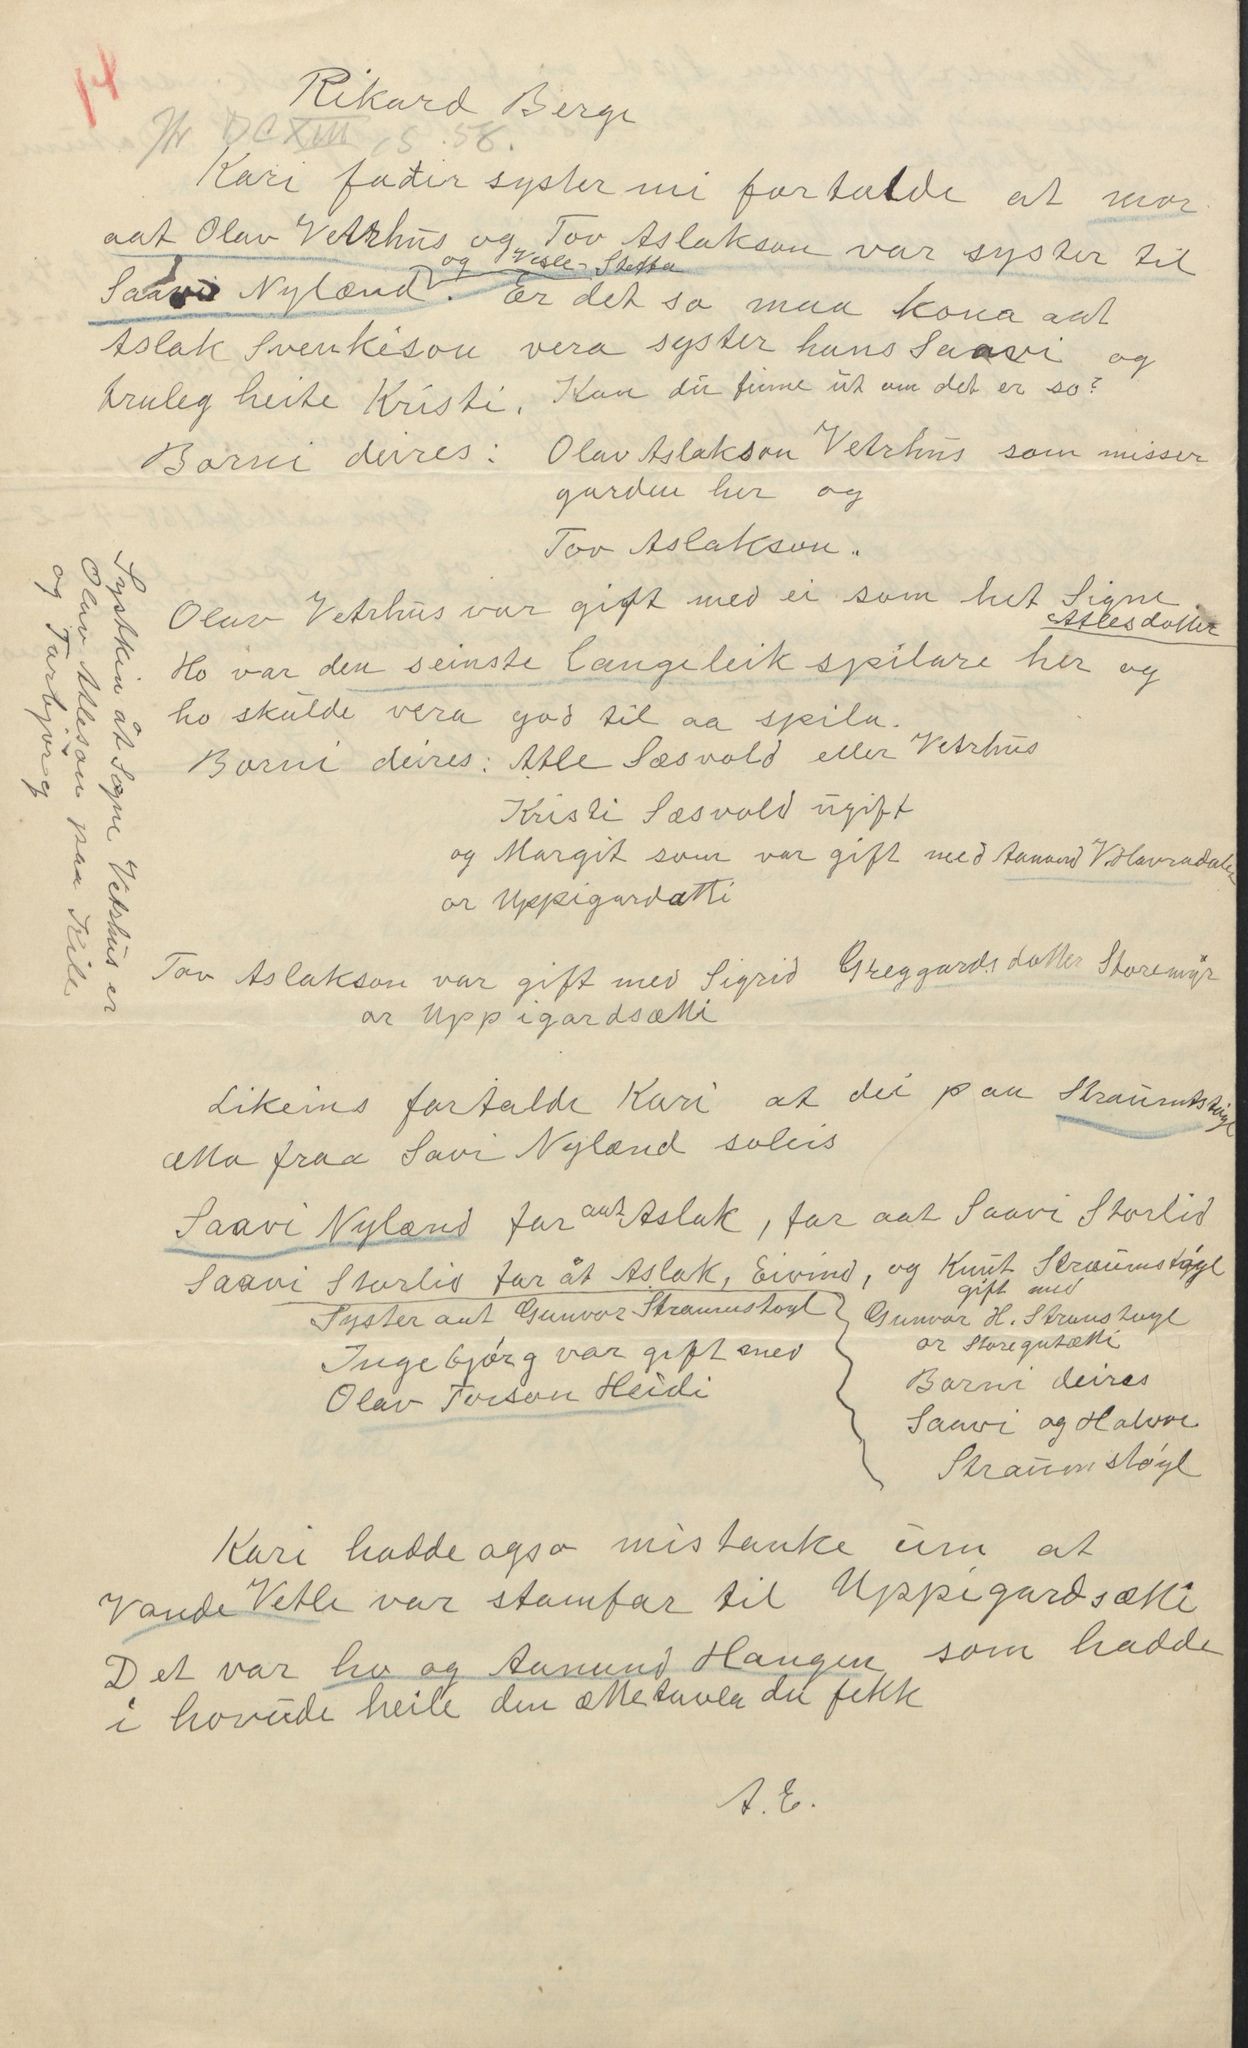 14
Rikard Berge
DCXIII, s. 58.
Kari fadir syster mi fortalde at mor
aat Olav Vetrhus og Tov Aslakson var syster til
og Vesle-Stetta
Saavi Nylænd. Er det so maa kona aat
Aslak Svenkeson vera syster hans Saavi og
truleg heite Kristi. Kan du finne ut om det er so?
Borni deires: Olav Aslakson Vetrhus som misser
garden her og
Tov Aslakson.
Olav Vetrhus var gift med ei som het Signe
Atlesdotter
Ho var den seinste langeleik spilare her og
ho skulde vera god til aa spila.
Borni deires: Atle Sæsvold eller Vetrhus
Kristi Sæsvold ugift
og Margit som var gift med Aanund V. Havradalen
or Uppigardætti
Systkin åt Signe Vetrhus er
Olav Atleson paa Kile
og Tarbjørg
Tov Aslakson var gift med Sigrid Greggards dotter Storemyr
or Uppigardsætti
Likeins fortalde Kari at dei paa Straumstøyl
ætta fraa Savi Nylænd soleis
Saavi Nylænd far aat Aslak, far aat Saavi Storlid
Saavi Storlid far åt Aslak, Eivind, og Knut Straumstøyl
gift med
Syster aat Gunvor Straumstoyl
Gunvor H. Strumstoyl
Ingebjørg var gift med
or Storegutætti
Olav Tovson Heidi
Borni deires
Saavi og Halvor
Straumstøyl
Kari hadde ogso mistanke um at
Vonde Vetle var stamfar til Uppigardsætti
Det var ho og Aanund Haugen som hadde
i hovude heile den ættetavla du fekk
A. E.